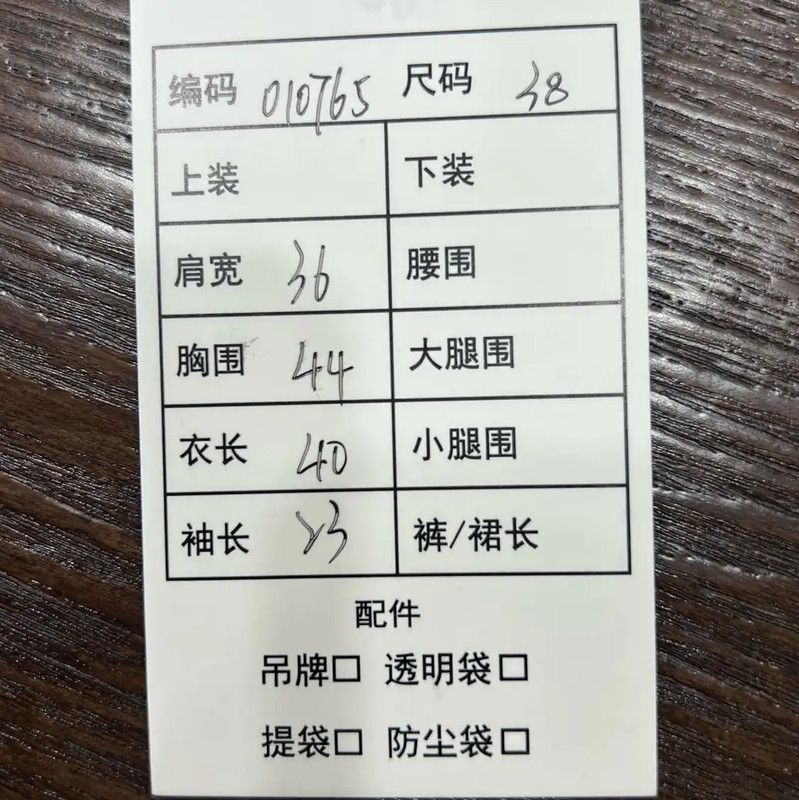 编码 010765 尺码 38
上装 下装
肩宽 36 腰围
胸围 44 大腿围
衣长 40 小腿围
袖长 23 裤/裙长
配件
吊牌□ 透明袋□
提袋□ 防尘袋□